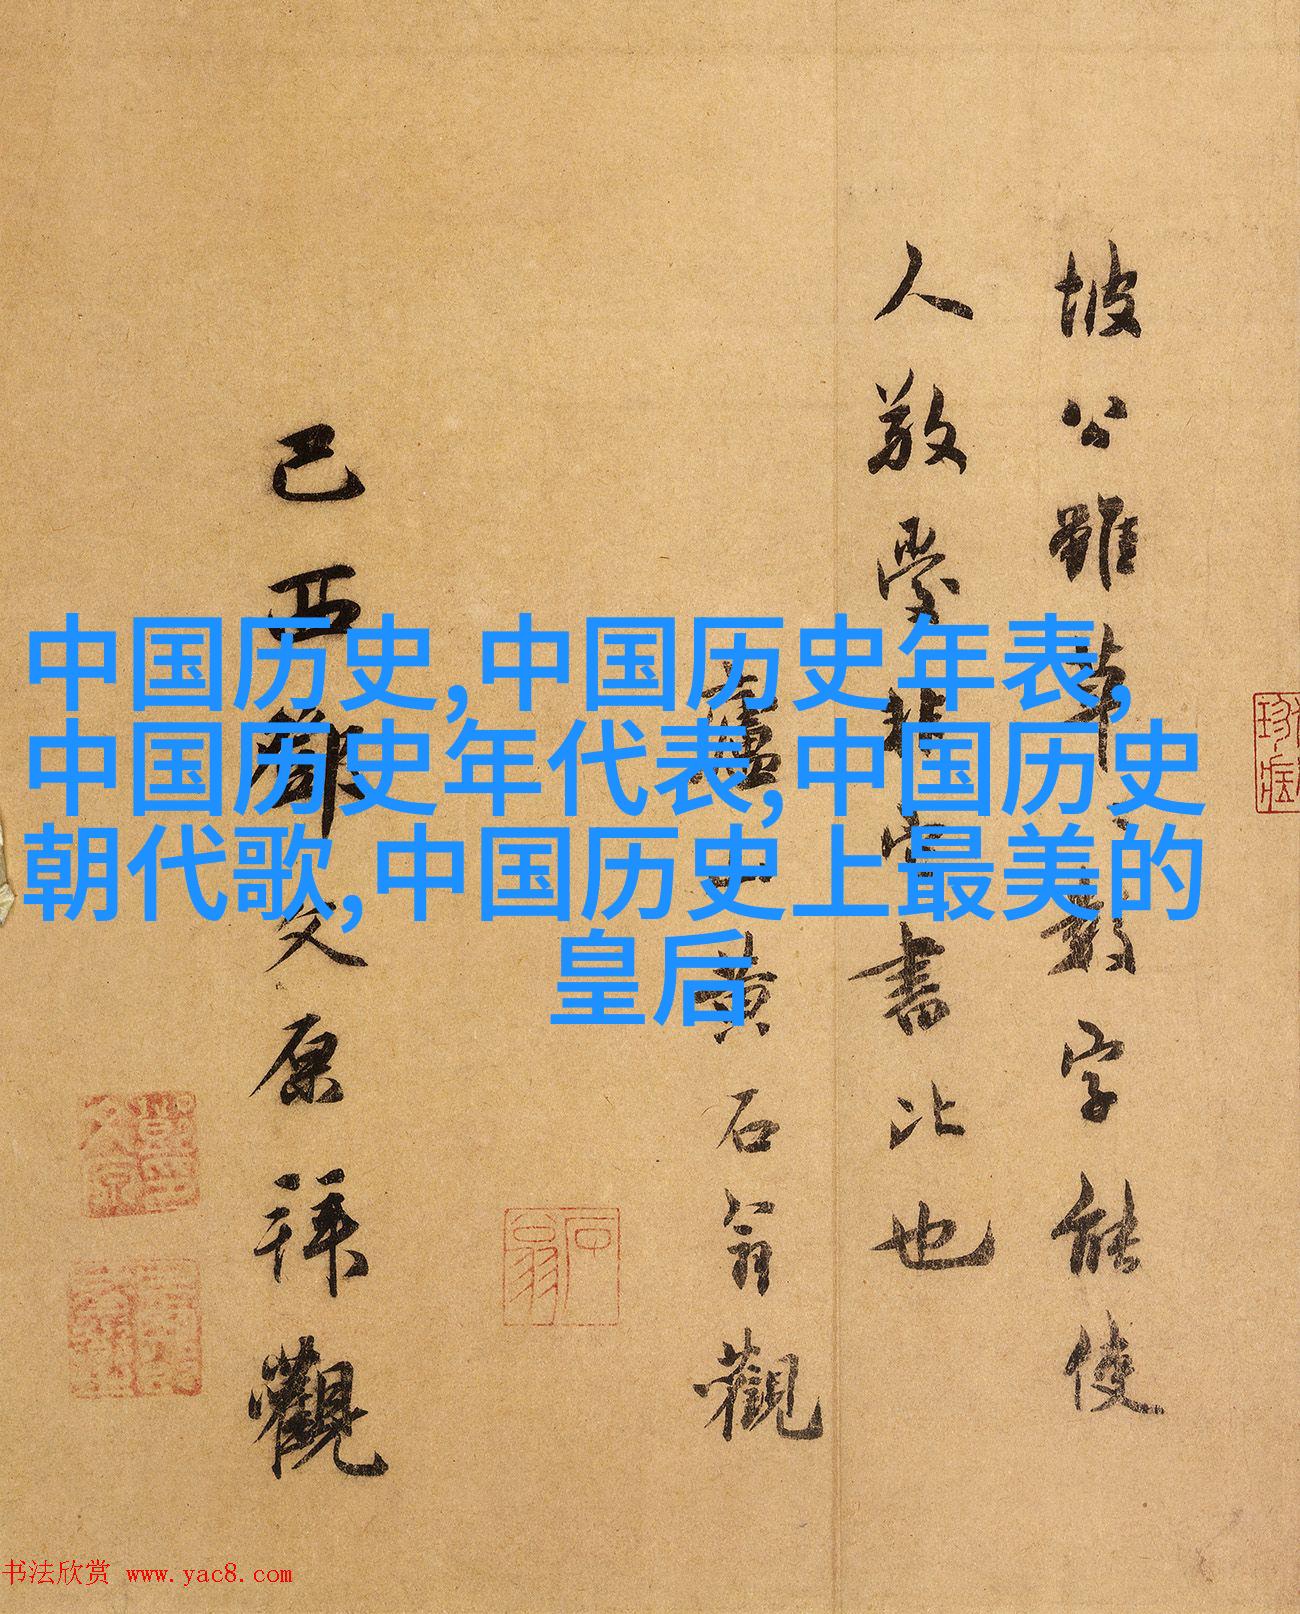 坡公雖草草數字能使
人敬愛非常書比也
廬山黄石翁觀
己酉鄧文原拜觀
石翁
中国历史,中国历史年表,
中国历史年代表,中国历史
朝代歌,中国历史上最美的
皇后
书法欣赏 www.yac8.com